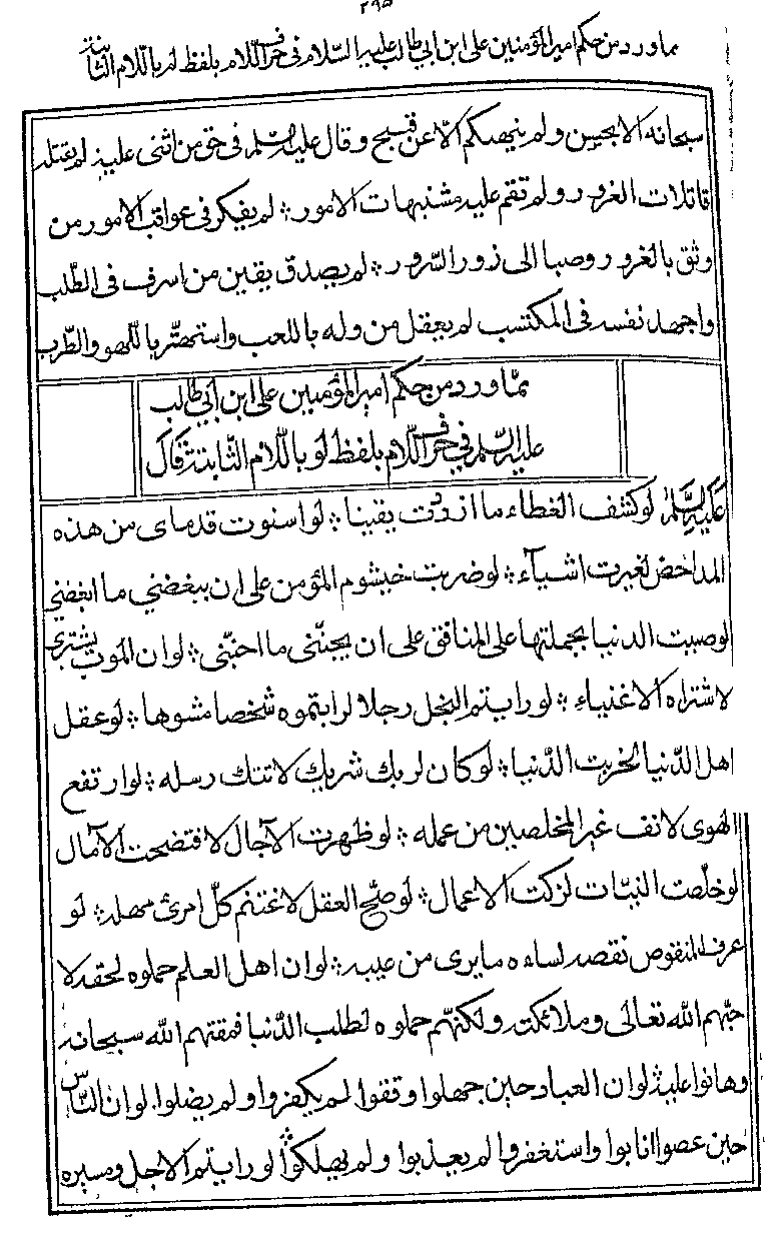 ٢٩٥
مما ورد من حكم امير المؤمنين على ابن ابي طالب عليه السلام في حرف اللام بلفظ لم باللام الثابتة
سبحانه الا بحسن ولم ينهكم الا عن قبيح وقال عليه السلم في حق من اثنى عليه لم يقتله
قاتلات الغرور ولم تقم عليه مشتبهات الامور لم يفكر في عواقب الامور من
وثق بالغرور وصبا الى زور السرور لم يصدق يقين من اسرف في الطلب
واجهد نفسه في المكتسب لم يعقل من وله باللعب واستهتر باللهو والطرب
مما ورد من حكم امير المؤمنين على ابن ابي طالب
عليه السلم في حرف اللام بلفظ لو باللام الثابتة قال
عليه السلم لو كشف الغطاء ما ازددت يقينا لو استوت قدماى من هذه
المداحض لغيرت اشيآء لو ضربت خيشوم المؤمن على ان يبغضني ما ابغضني
لو صببت الدنيا بجملتها على المنافق على ان يحبنى ما احبنى لو ان الموت يشترى
لاشتراه الاغنياء لو رايتم البخل رجلا لرايتموه شخصا مشوها لو عقل
اهل الدنيا لخربت الدنيا لو كان لربك شريك لاتتك رسله لو ارتفع
الهوى لانف غير المخلصين من عمله لو ظهرت الآجال لافتضحت الآمال
لو خلصت النيات لزكت الاعمال لو صح العقل لاغتنم كل امرئ مهله لو
عرف المنقوص نقصه لساءه ما يرى من عيبه لو ان اهل العلم حملوه لحقه لا
حبهم الله تعالى وملائكته ولكنهم حملوه لطلب الدنيا فمقتهم الله سبحانه
وهانوا عليه لو ان العباد حين جهلوا وقفوا لم يكفروا ولم يضلوا لو ان الناس
حين عصوا انابوا واستغفروا لم يعذبوا ولم يهلكوا لو رايتم الاجل ومسيره